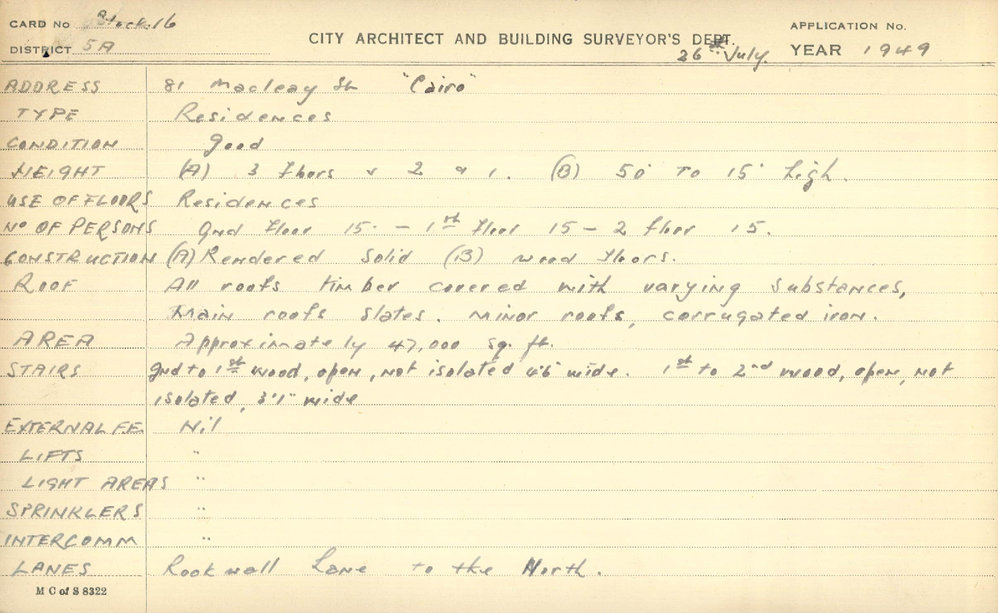 CARD No Block 16
DISTRICT 5A
CITY ARCHITECT AND BUILDING SURVEYOR'S DEPT.
APPLICATION No.
26th July. YEAR 1949
ADDRESS 81 Macleay St "Cairo"
TYPE Residences
CONDITION good
HEIGHT (A) 3 floors & 2 & 1. (B) 50' to 15' high.
USE OF FLOORS Residences
No OF PERSONS gnd floor 15. - 1st floor 15 - 2 floor 15.
CONSTRUCTION (A) Rendered Solid (B) wood floors.
ROOF All roofs timber covered with varying substances,
Main roofs slates. Minor roofs, corrugated iron.
AREA Approximately 47,000 sq. ft.
STAIRS gnd to 1st wood, open, not isolated 4'6" wide. 1st to 2nd wood, open, not
isolated, 3'1" wide
EXTERNAL F.E. Nil
LIFTS "
LIGHT AREAS "
SPRINKLERS "
INTERCOMM "
LANES Rockwall Lane to the North.
M C of S 8322